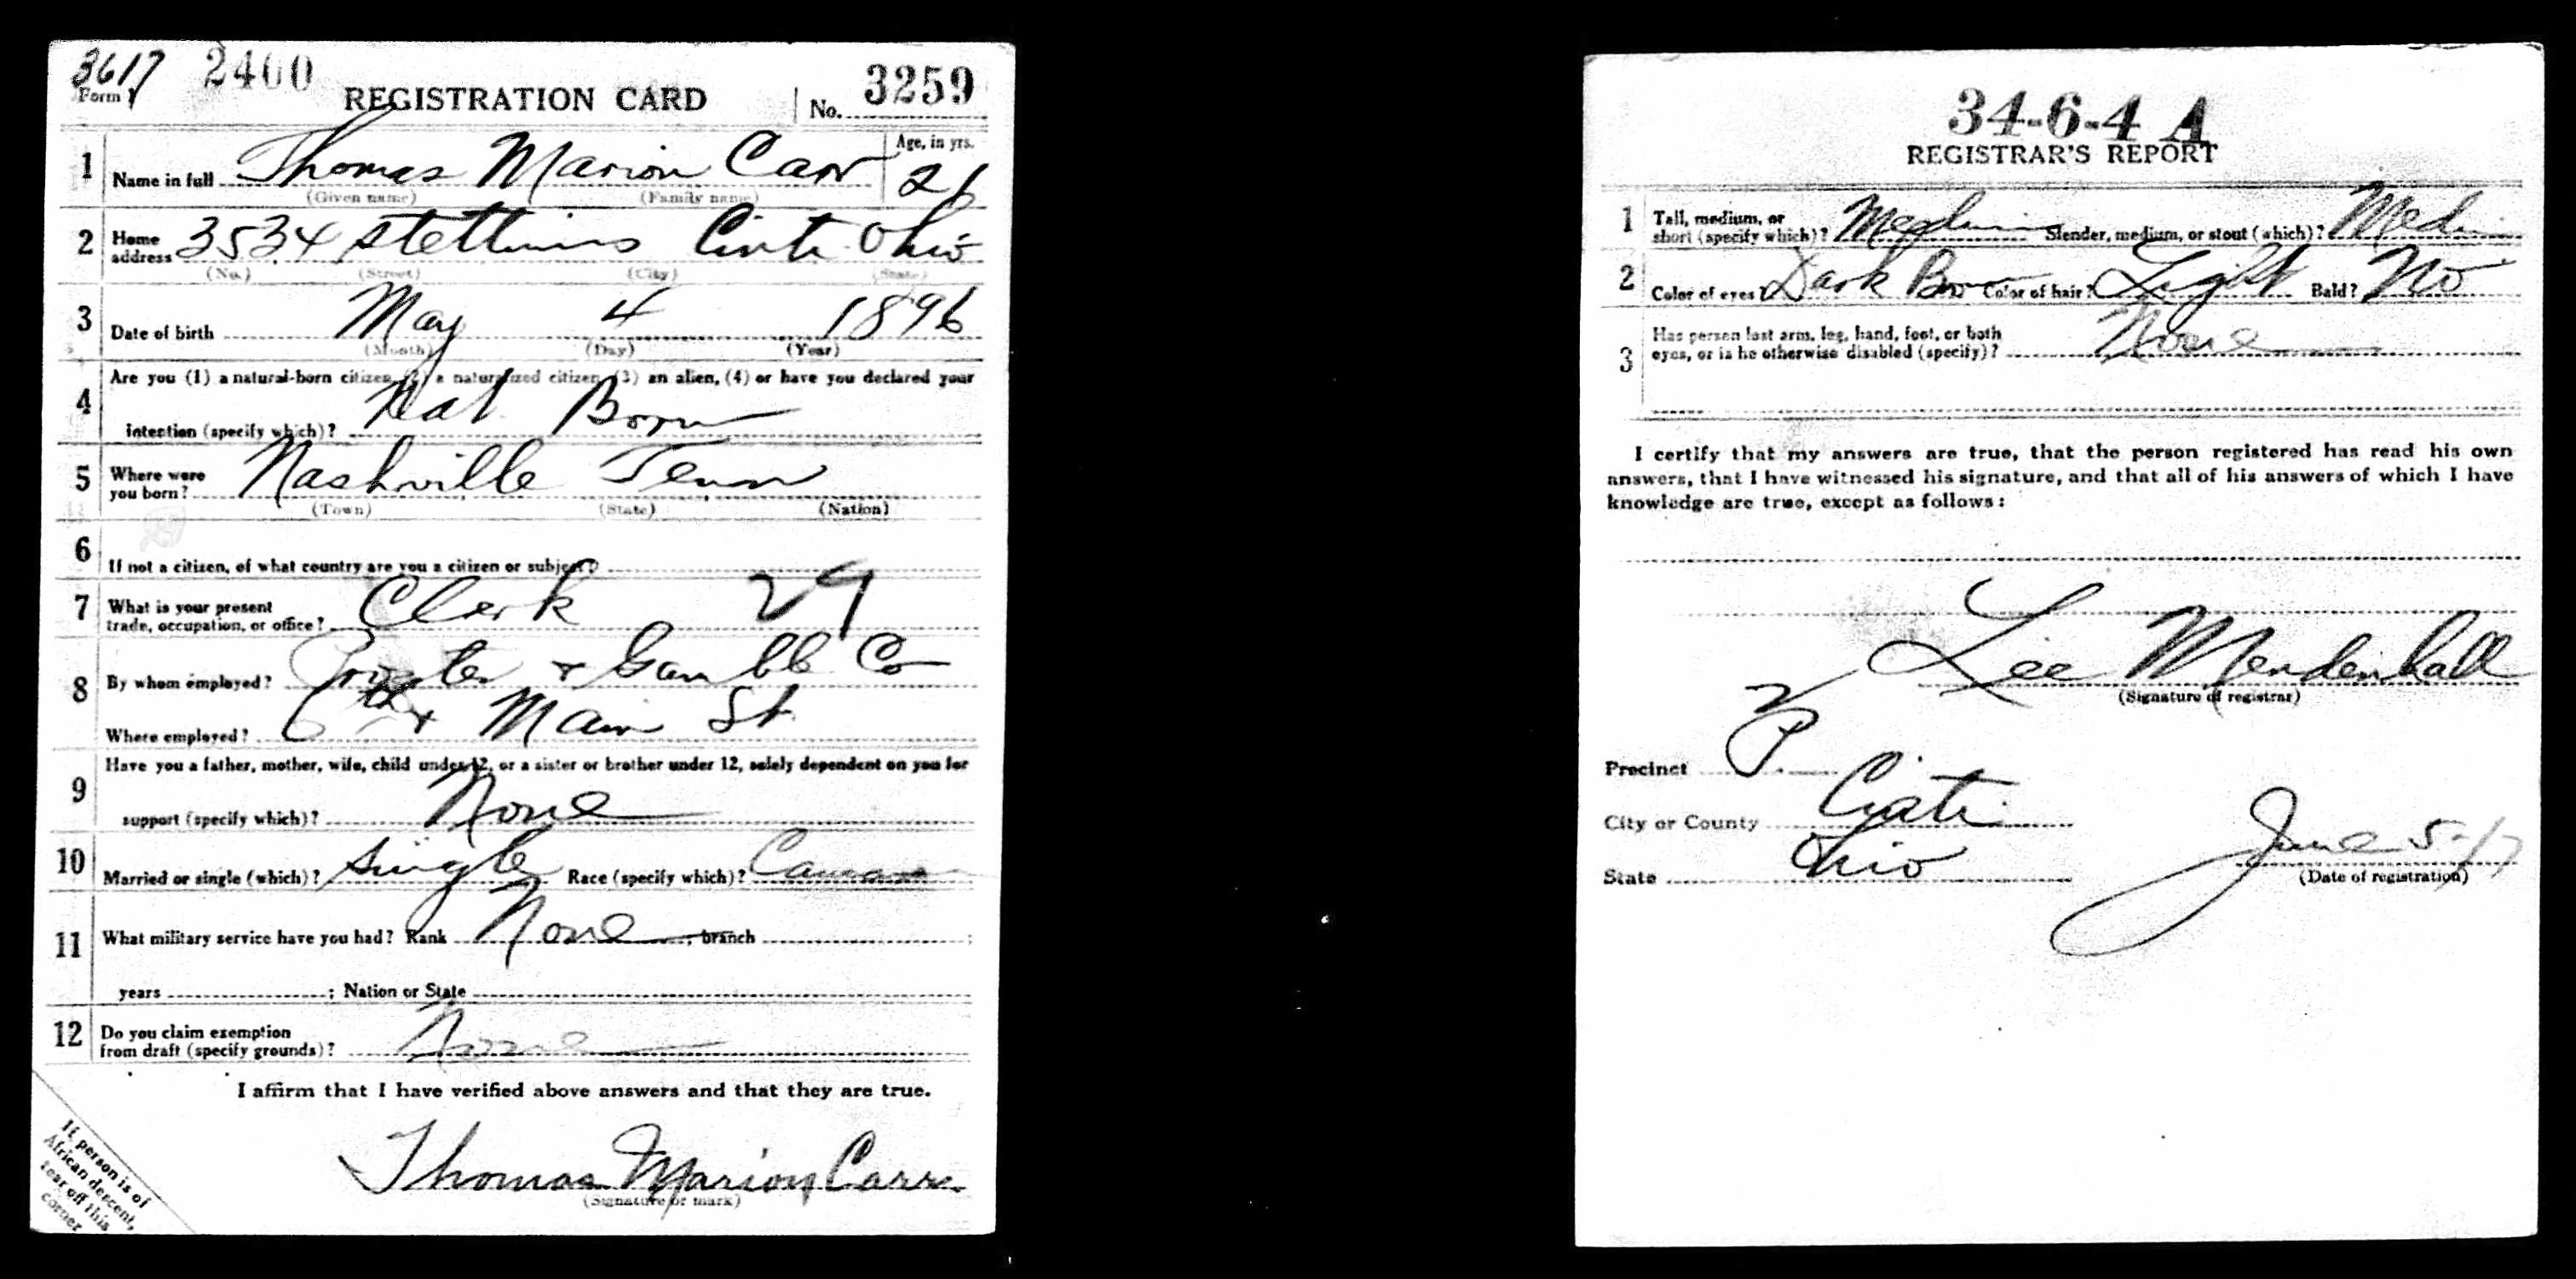 3617 2400
Form 1 REGISTRATION CARD No. 3259
1 Name in full Thomas Marion Carr Age, in yrs. 21
(Given name) (Family name)
2 Home address 3534 Stettinius Cinti Ohio
(No.) (Street) (City) (State)
3 Date of birth May 4 1896
(Month) (Day) (Year)
4 Are you (1) a natural-born citizen, (2) a naturalized citizen, (3) an alien, (4) or have you declared your
intention (specify which)? Nat Born
5 Where were you born? Nashville Tenn
(Town) (State) (Nation)
6 If not a citizen, of what country are you a citizen or subject?
7 What is your present trade, occupation, or office? Clerk 29
8 By whom employed? Procter & Gamble Co
Where employed? 6th & Main St
9 Have you a father, mother, wife, child under 12, or a sister or brother under 12, solely dependent on you for
support (specify which)? None
10 Married or single (which)? Single Race (specify which)?
11 What military service have you had? Rank None ; branch ;
years ; Nation or State
12 Do you claim exemption from draft (specify grounds)? None
I affirm that I have verified above answers and that they are true.
Thomas Marion Carr
(Signature or mark)
If person is of
African descent,
tear off this
corner
34-6-4 A
REGISTRAR'S REPORT
1 Tall, medium, or short (specify which)? Medium Slender, medium, or stout (which)? Medi
2 Color of eyes? Dark Brown Color of hair? Light Bald? No
3 Has person lost arm, leg, hand, foot, or both
eyes, or is he otherwise disabled (specify)? None
I certify that my answers are true, that the person registered has read his own
answers, that I have witnessed his signature, and that all of his answers of which I have
knowledge are true, except as follows:
Lee Mendenhall
(Signature of registrar)
Precinct P
City or County Cinti
State Ohio
June 5-17
(Date of registration)